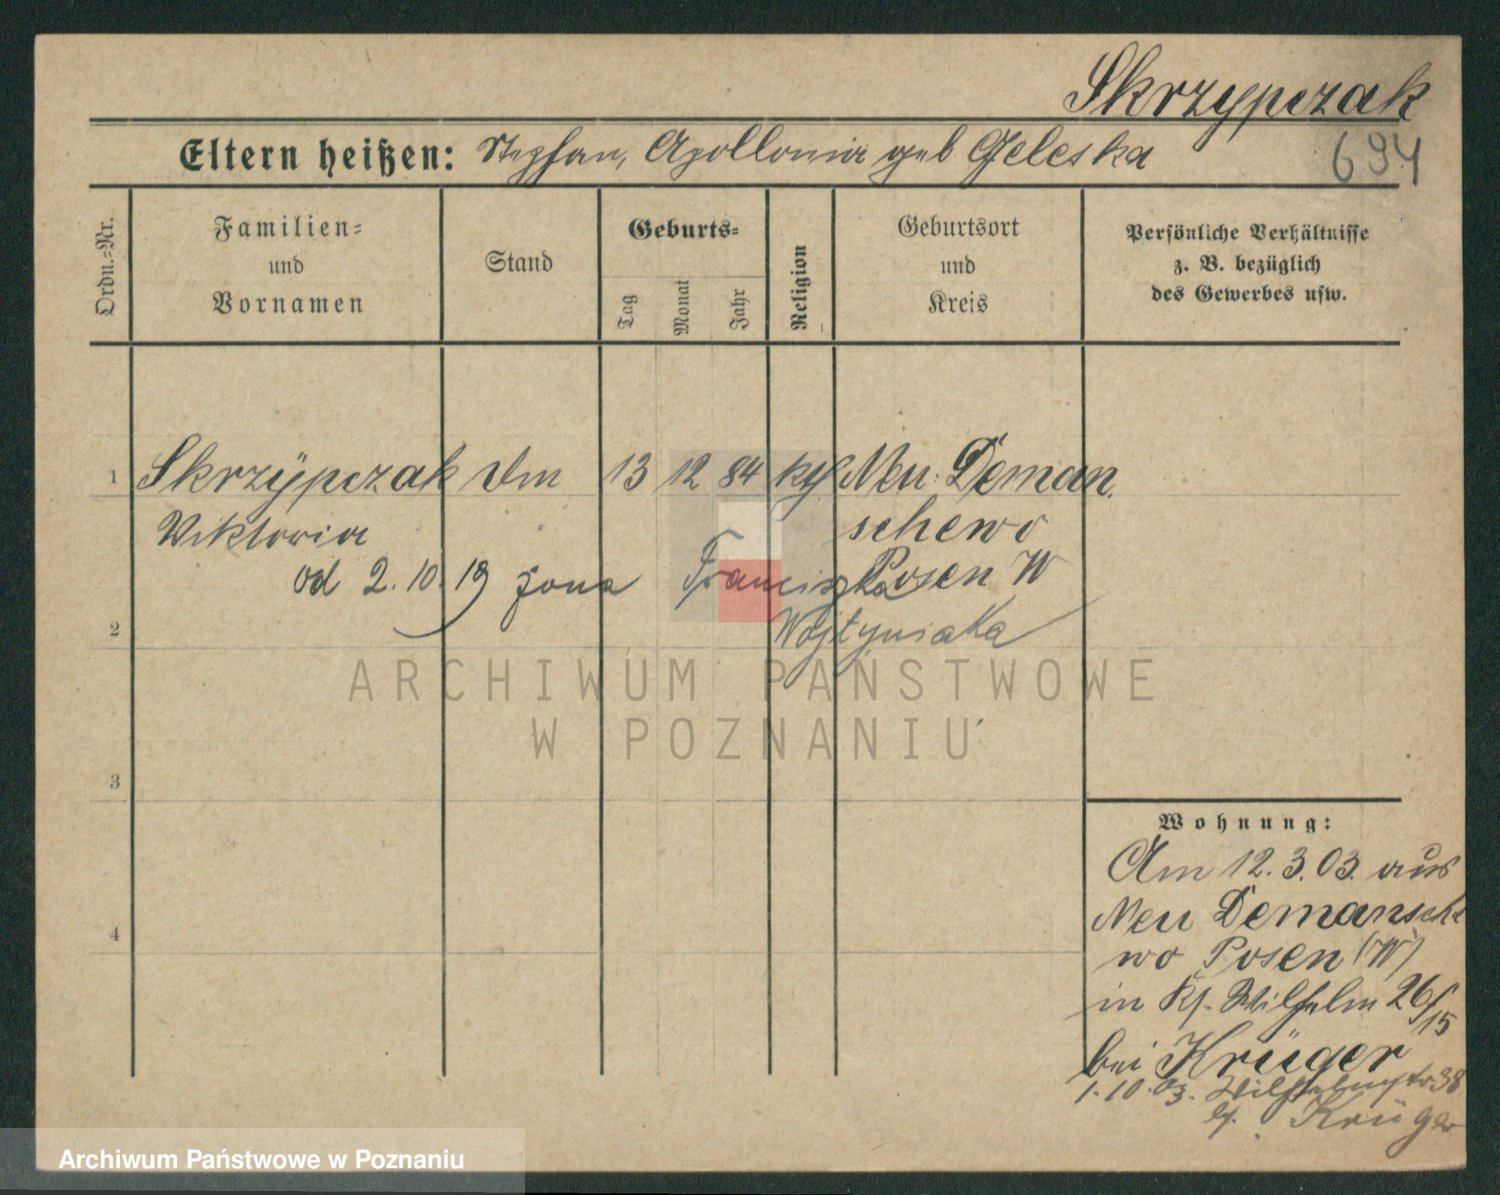 Skrzypczak
694
Eltern heißen: Stephan, Apollonia geb Geleska
Ordn.=Nr.
Familien=
und
Vornamen
Stand
Geburts=
Tag
Monat
Jahr
Religion
Geburtsort
und
Kreis
Persönliche Verhältnisse
z. B. bezüglich
des Gewerbes usw.
1 Skrzÿpczak 13 12 84 kth Neu Deman
Viktoria schewo
od 2. 10. 19 żona Franciszka Posen W
2 Wojtyniaka
3
4
Wohnung:
Am 12. 3. 03. aus
Neu Demansche
wo Posen (W)
in Ks. Wilhelm 26/15
bei Krüger
1. 10. 03. Wilhelmstr 38
b. Krüger
ARCHIWUM PAŃSTWOWE
W POZNANIU
Archiwum Państwowe w Poznaniu